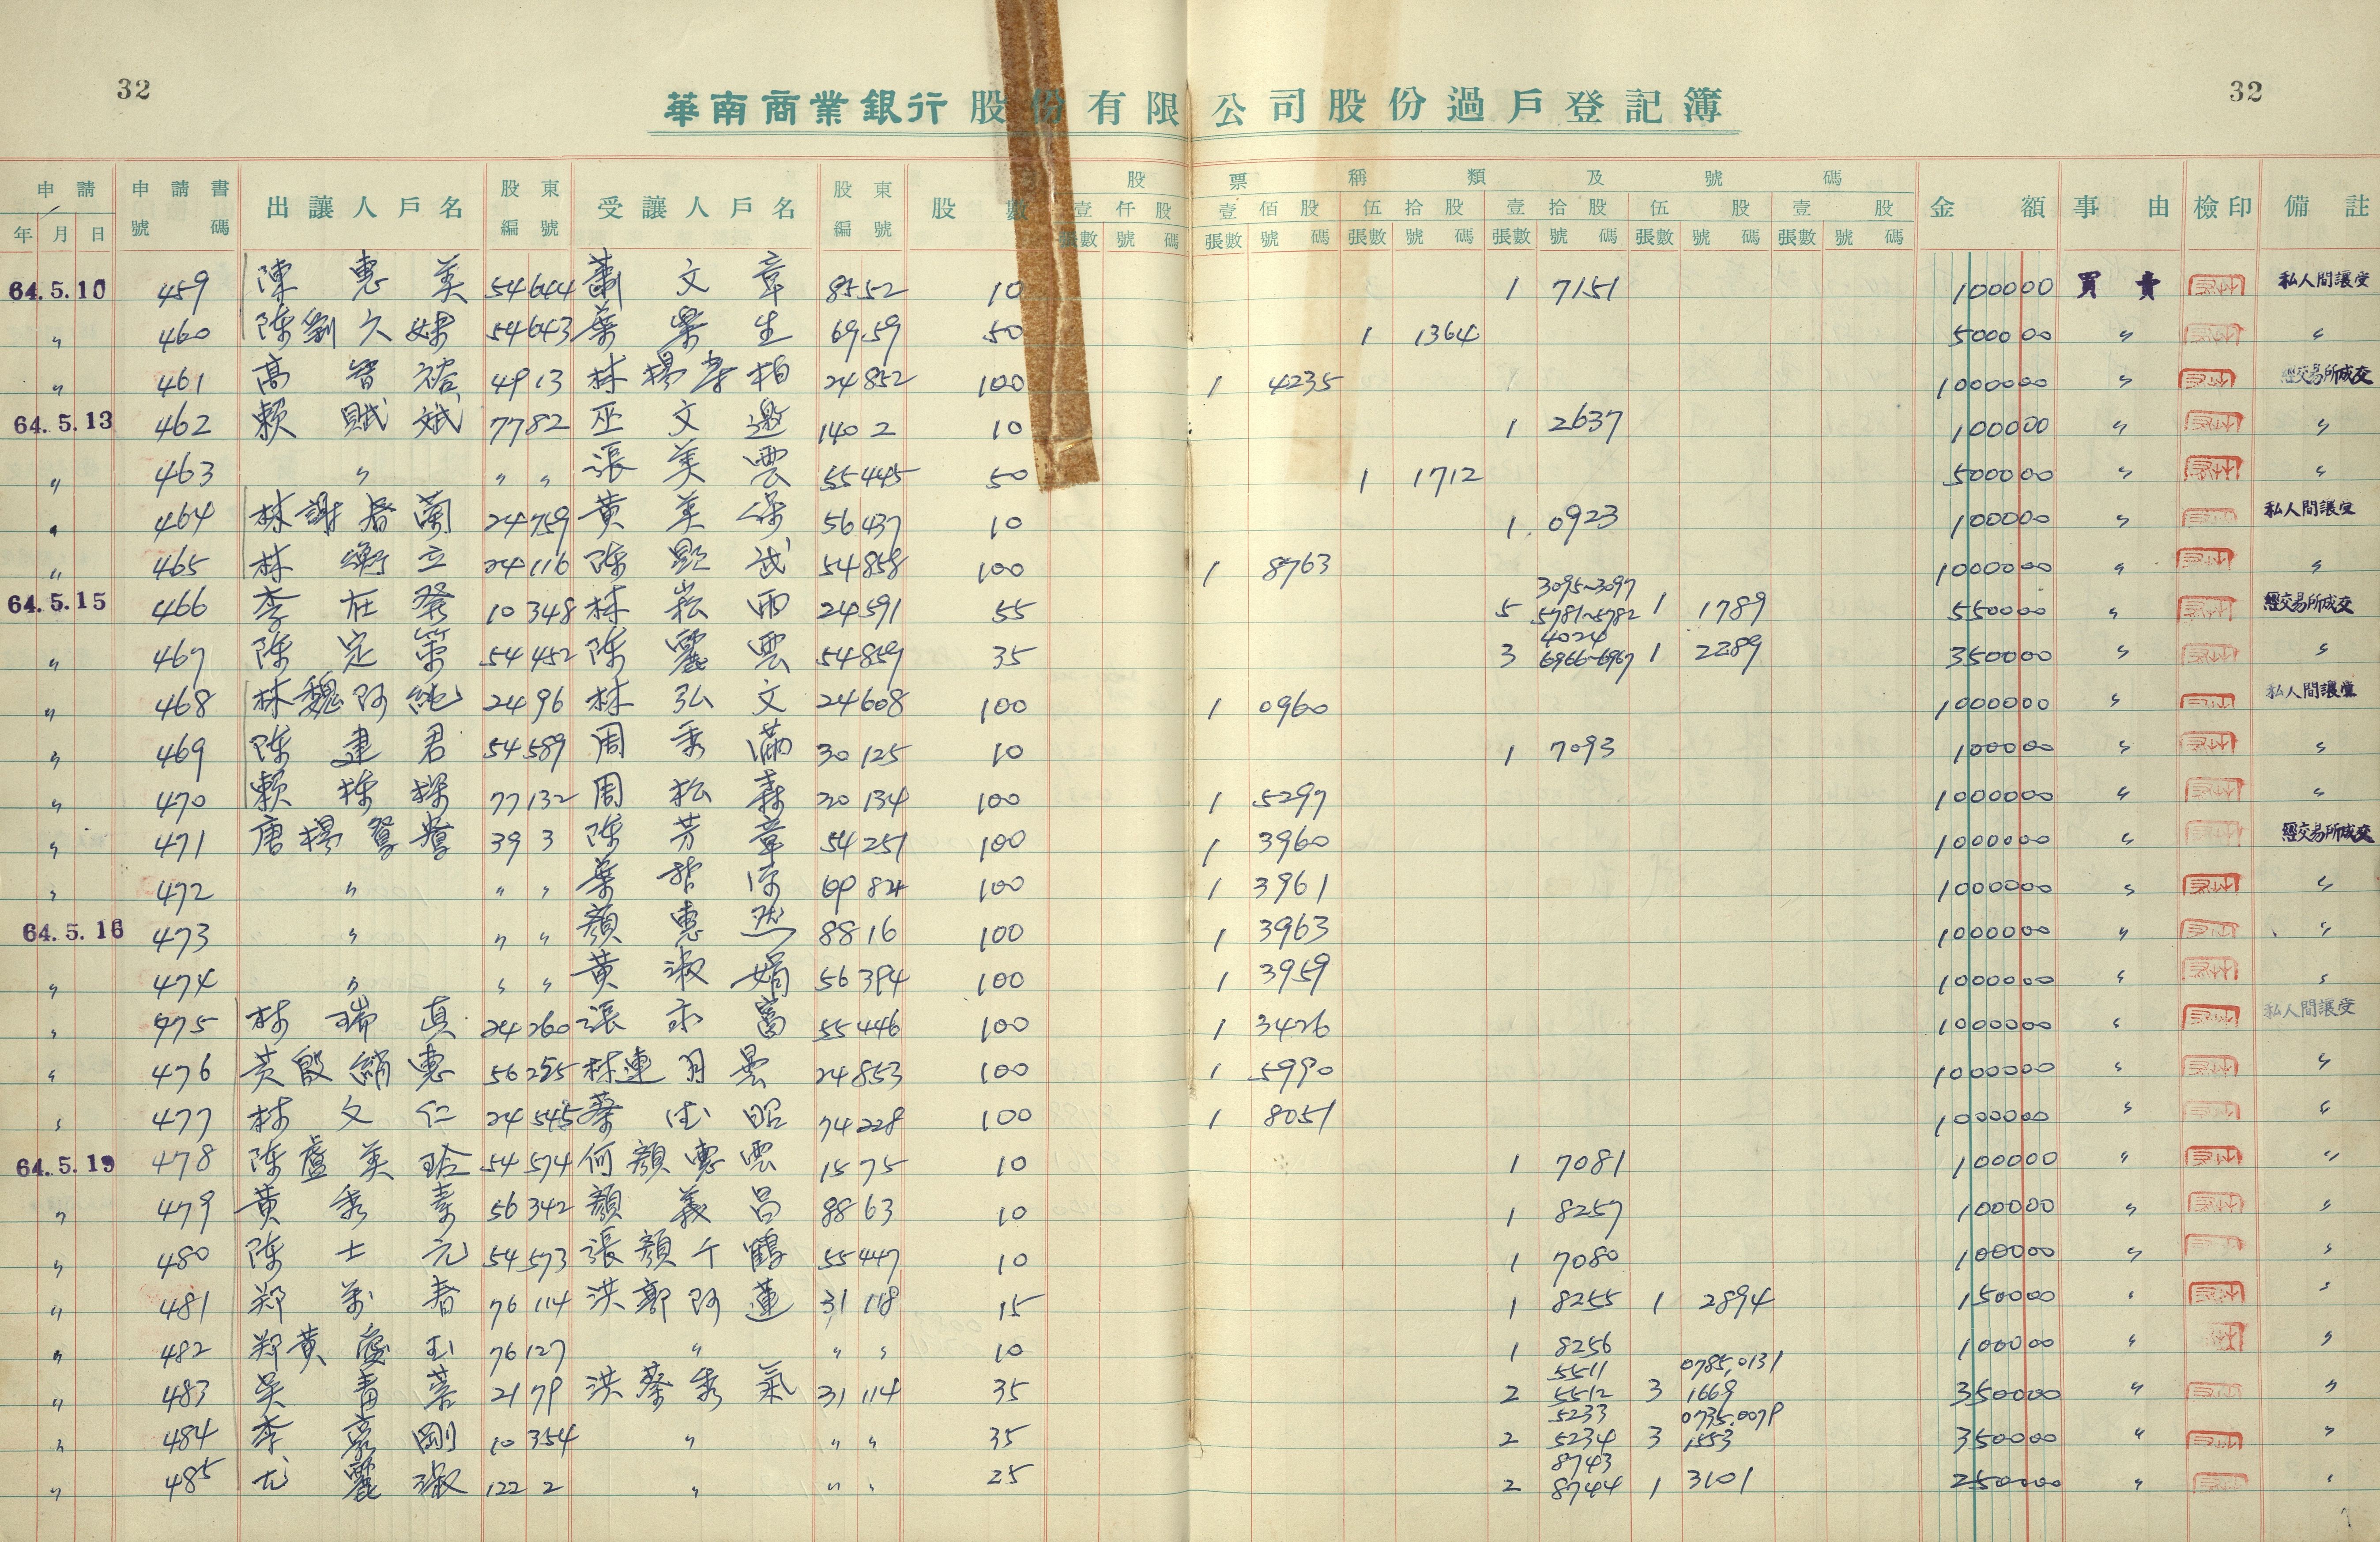 32
32
華南商業銀行股份有限公司股份過戶登記簿
申請 申請書 出讓人戶名 股東 受讓人戶名 股東 股數 股票種類及號碼 金額 事由 檢印 備註
年 月 日 號碼 編號 編號 壹仟股 壹佰股 伍拾股 壹拾股 伍股 壹股
張數 號碼 張數 號碼 張數 號碼 張數 號碼 張數 號碼 張數 號碼
64.5.10 459 陳惠英 54 644 蕭文章 85 52 10 1 7151 100000 買賣 私人間讓受
〃 460 陳劉久妹 54 643 葉 生 69 59 50 1 1364 500000 〃 〃
〃 461 高智 49 13 林楊 柏 24 852 100 1 4235 1000000 〃 經交易所成交
64.5.13 462 賴賦斌 77 82 巫文邀 140 2 10 1 2637 100000 〃 〃
〃 463 〃 〃 〃 張美雲 55 445 50 1 1712 500000 〃 〃
〃 464 林謝春蘭 24 759 黃英 56 437 10 1 0923 100000 〃 私人間讓受
〃 465 林衡立 24 116 陳 54 858 100 1 8763 1000000 〃 〃
64.5.15 466 李在發 10 348 林崧雨 24 591 55 5 3095~3097 5781~5782 1 1789 550000 〃 經交易所成交
〃 467 陳定第 54 452 陳麗雲 54 859 35 3 4024 6966~6967 1 2289 350000 〃 〃
〃 468 林魏阿純 24 96 林弘文 24 608 100 1 0960 1000000 〃 私人間讓受
〃 469 陳建君 54 589 周秀滿 30 125 10 1 7093 100000 〃 〃
〃 470 賴 77 132 周松森 30 134 100 1 5297 1000000 〃 〃
〃 471 唐楊鴛鴦 39 3 陳芳章 54 251 100 1 3960 1000000 〃 經交易所成交
〃 472 〃 〃 〃 葉 69 84 100 1 3961 1000000 〃 〃
64.5.16 473 〃 〃 〃 顏惠然 88 16 100 1 3963 1000000 〃 〃
〃 474 〃 〃 〃 黃淑娟 56 394 100 1 3959 1000000 〃 〃
〃 475 林瑞真 24 260 張 富 55 446 100 1 3426 1000000 〃 私人間讓受
〃 476 黃殷綃惠 56 255 林連 24 853 100 1 5990 1000000 〃 〃
〃 477 林文仁 24 545 蔡 昭 74 228 100 1 8051 1000000 〃 〃
64.5.19 478 陳盧英 54 574 何顏惠雲 15 75 10 1 7081 100000 〃 〃
〃 479 黃秀 56 342 顏義昌 88 63 10 1 8257 100000 〃 〃
〃 480 陳士元 54 573 張顏千鶴 55 447 10 1 7080 100000 〃 〃
〃 481 鄭萬春 76 114 洪郭阿蓮 31 118 15 1 8255 1 2894 150000 〃 〃
〃 482 鄭黃 玉 76 127 〃 〃 〃 10 1 8256 100000 〃 〃
〃 483 吳 21 79 洪蔡秀氣 31 114 35 2 5511 5512 3 0785,0131 1669 350000 〃 〃
〃 484 李 剛 10 354 〃 〃 〃 35 2 5233 5234 3 0735,0079 1553 350000 〃 〃
〃 485 尤麗淑 122 2 〃 〃 〃 25 2 8743 8744 1 3101 250000 〃 〃